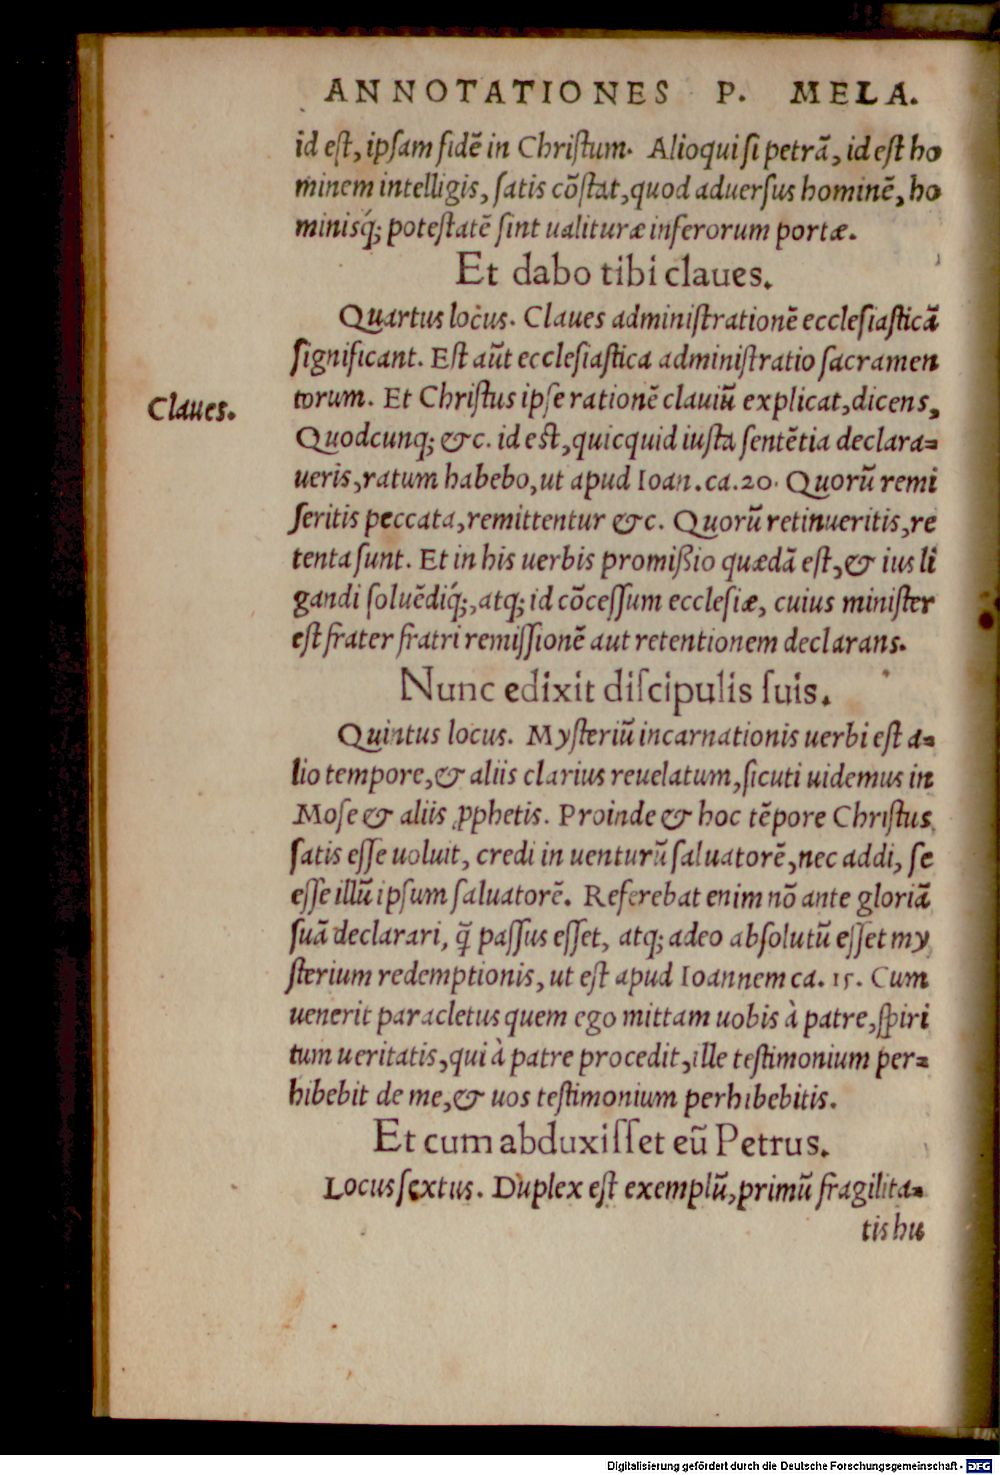 ANNOTATIONES P. MELA.
id est, ipsam fidẽ in Christum. Alioqui si petrã, id est ho
minem intelligis, satis cõstat, quod aduersus hominẽ, ho
minisq́; potestatẽ sint ualituræ inferorum portæ.
Et dabo tibi claues.
Quartus locus. Claues administrationẽ ecclesiasticã
significant. Est aũt ecclesiastica administratio sacramen
Claues.
torum. Et Christus ipse rationẽ clauiũ explicat, dicens,
Quodcunq; &c. id est, quicquid iusta sentẽtia declara=
ueris, ratum habebo, ut apud Ioan. ca. 20. Quorũ remi
seritis peccata, remittentur &c. Quorũ retinueritis, re
tenta sunt. Et in his uerbis promißio quædã est, & ius li
gandi soluẽdiq́;, atq; id cõcessum ecclesiæ, cuius minister
est frater fratri remissionẽ aut retentionem declarans.
Nunc edixit discipulis suis.
Quintus locus. Mysteriũ incarnationis uerbi est a=
lio tempore, & aliis clarius reuelatum, sicuti uidemus in
Mose & aliis ꝓphetis. Proinde & hoc tẽpore Christus
satis esse uoluit, credi in uenturũ saluatorẽ, nec addi, se
esse illũ ipsum saluatorẽ. Referebat enim nõ ante gloriã
suã declarari, q̃ passus esset, atq; adeo absolutũ esset my
sterium redemptionis, ut est apud Ioannem ca. 15. Cum
uenerit paracletus quem ego mittam uobis à patre, spiri
tum ueritatis, qui à patre procedit, ille testimonium per=
hibebit de me, & uos testimonium perhibebitis.
Et cum abduxisset eũ Petrus.
Locus sextus. Duplex est exemplũ, primũ fragilita=
tis hu
Digitalisierung gefördert durch die Deutsche Forschungsgemeinschaft - DFG